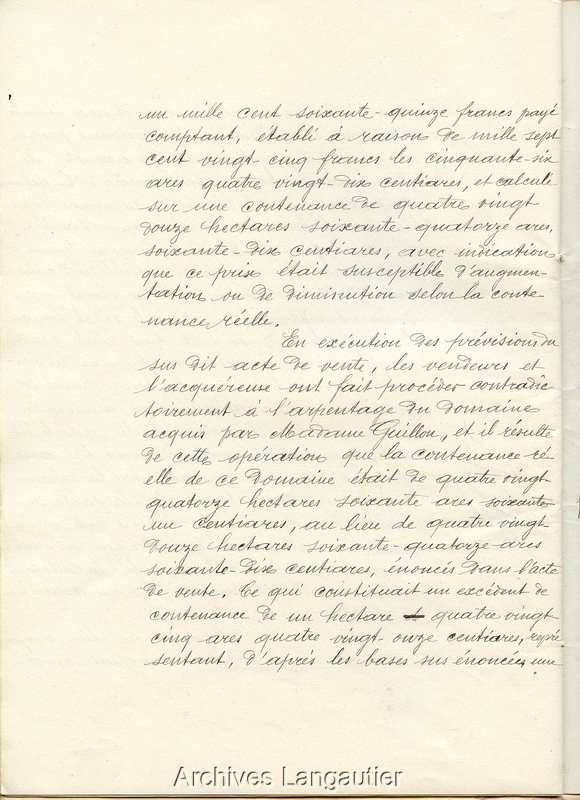 un mille cent soixante-quinze francs payé
comptant, établi à raison de mille sept
cent vingt-cinq francs les cinquante-six
ares quatre vingt-dix centiares, et calculé
sur une contenance de quatre vingt
douze hectares soixante-quatorze ares,
soixante-dix centiares, avec indication
que ce prix était susceptible d'augmen-
tation ou de diminution selon la conte-
nance réelle.
En exécution des prévisions du
sus dit acte de vente, les vendeurs et
l'acquéreuse ont fait procéder contradic
toirement à l'arpentage du Domaine
acquis par Madame Guillon, et il résulte
de cette opération que la contenance ré-
elle de ce Domaine était de quatre vingt
quatorze hectares soixante ares soixante
un centiares, au lieu de quatre vingt
douze hectares soixante-quatorze ares
soixante-dix centiares, énoncés dans l'acte
de vente. Ce qui constituait un excédent de
contenance de un hectare quatre vingt
cinq ares quatre vingt-onze centiares, repré
sentant, d'après les bases sus énoncées, une
Archives Langautier